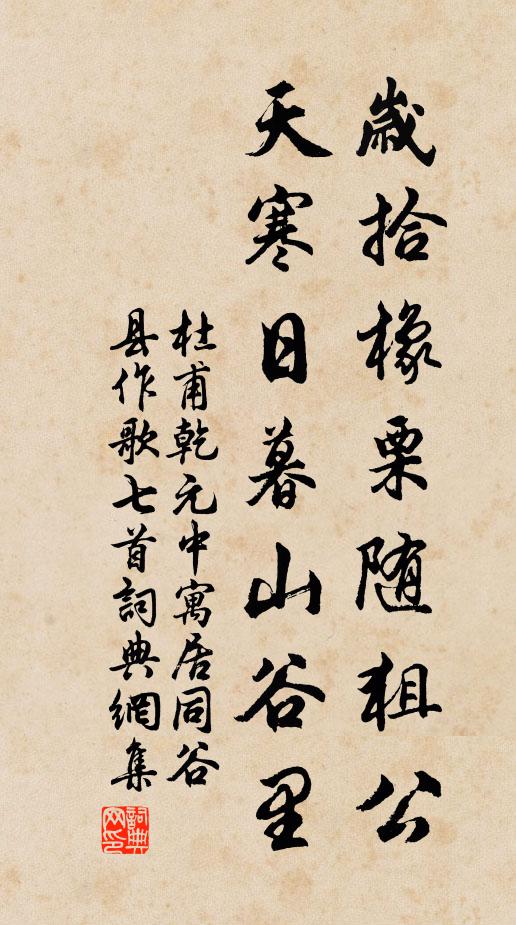 歲拾橡栗随狙公
天寒日暮山谷里
杜甫乾元中寓居同谷
县作歌七首詞典網集
詞典
网印